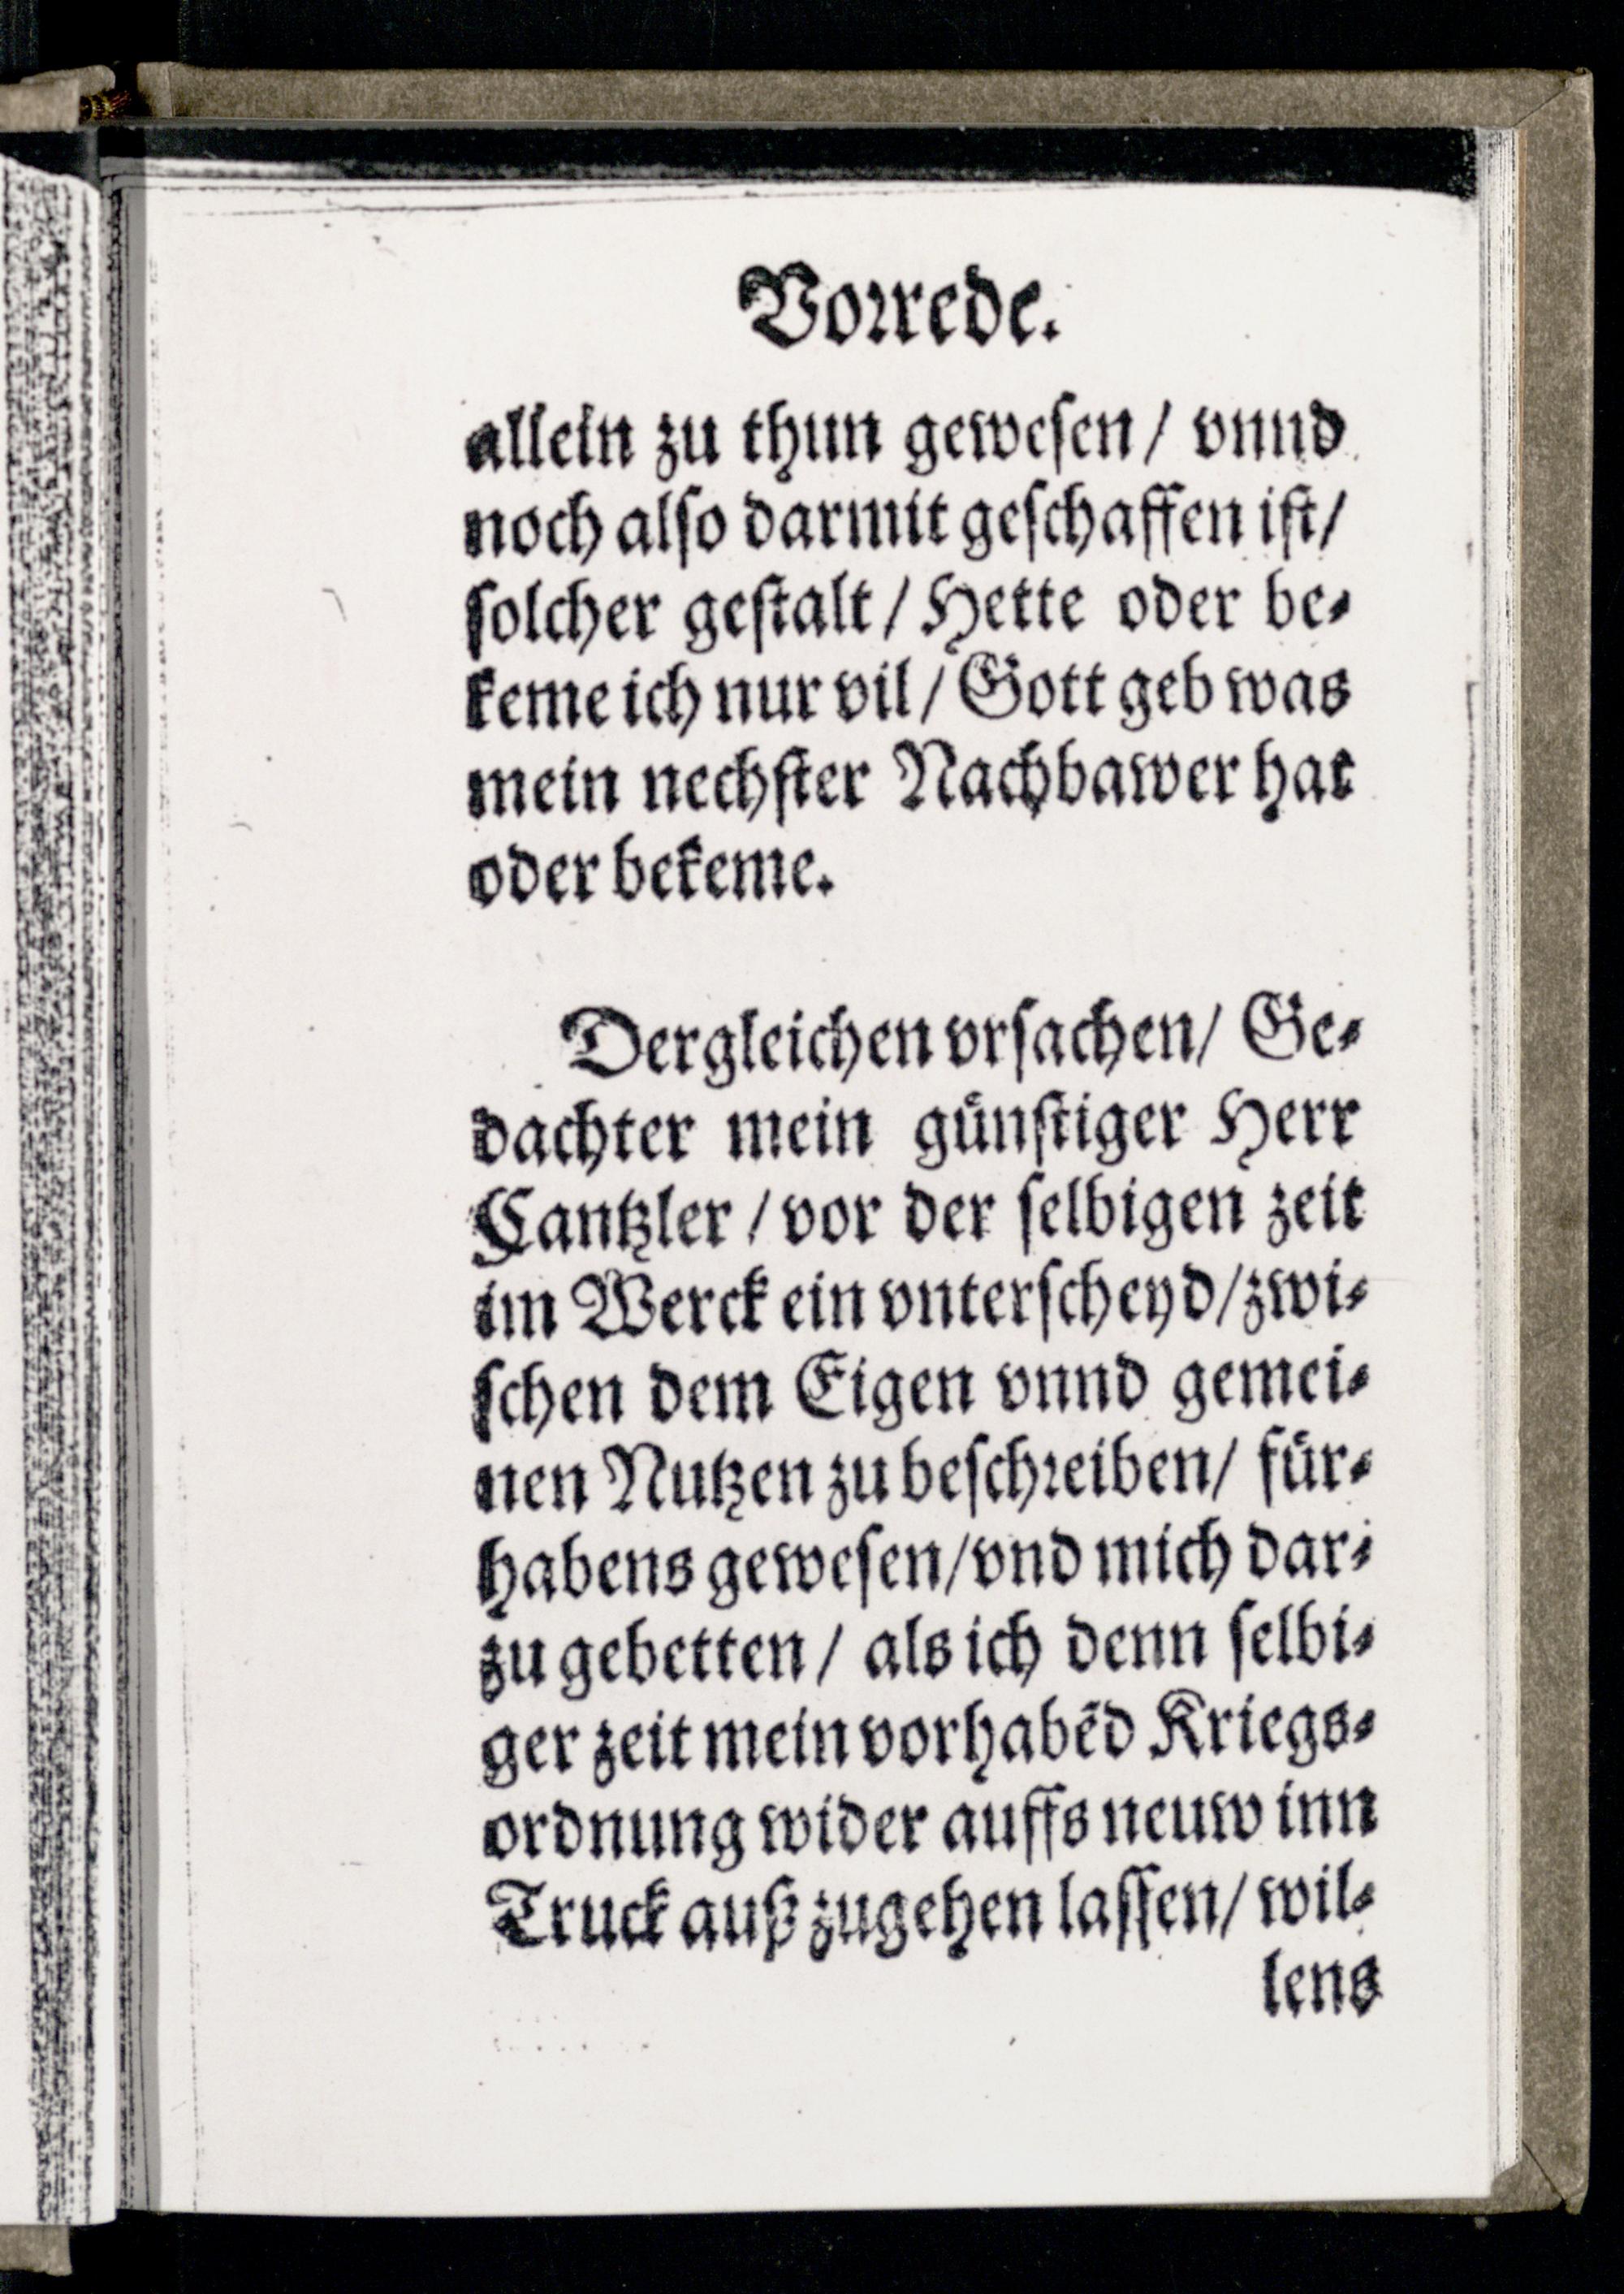 Vorrede.
allein zu thun gewesen / vnnd
noch also darmit geschaffen ist /
solcher gestalt / Hette oder be⸗
keme ich nur vil / Gott geb was
mein nechster Nachbawer hat
oder bekeme.
Dergleichen vrsachen / Ge⸗
dachter mein günstiger Herr
Cantzler / vor der selbigen zeit
im Werck ein vnterscheyd / zwi⸗
schen dem Eigen vnnd gemei⸗
nen Nutzen zu beschreiben / für⸗
habens gewesen / vnd mich dar⸗
zu gebetten / als ich denn selbi⸗
ger zeit mein vorhabẽd Kriegs⸗
ordnung wider auffs neuw inn
Truck auß zugehen lassen / wil⸗
lens